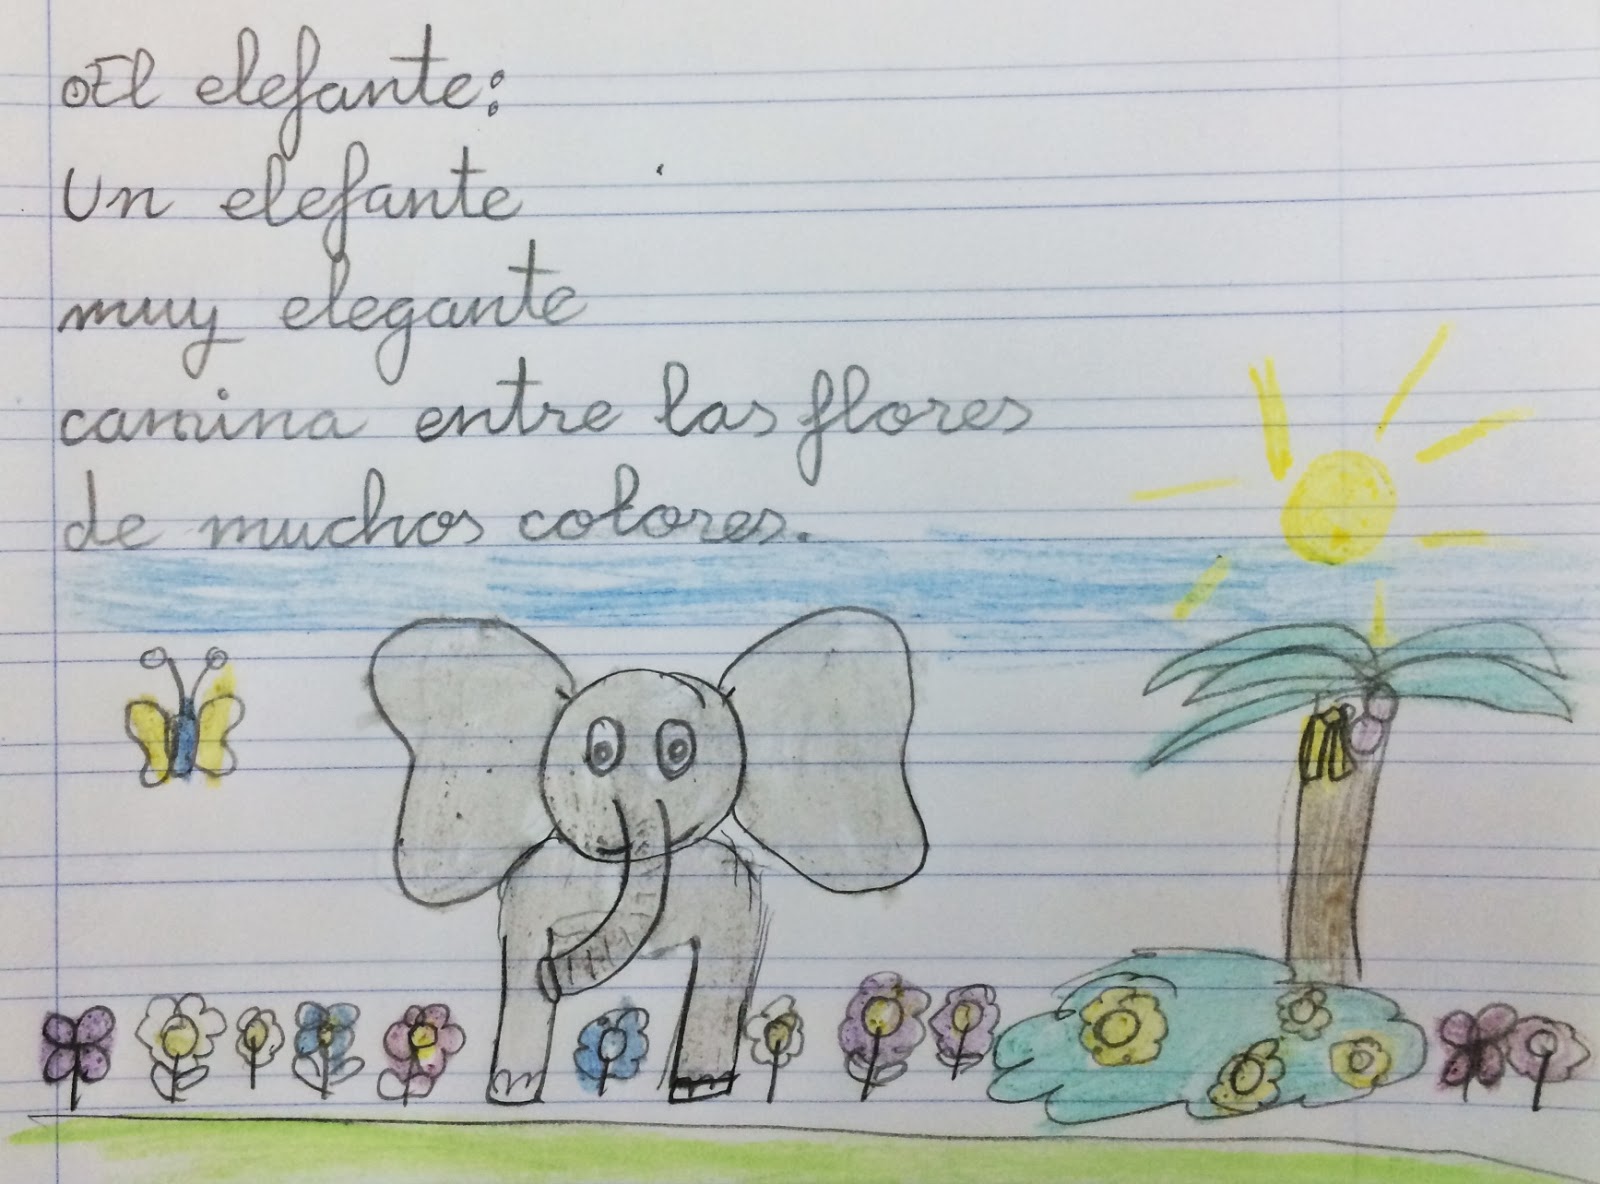 El elefante:
Un elefante
muy elegante
camina entre las flores
de muchos colores.